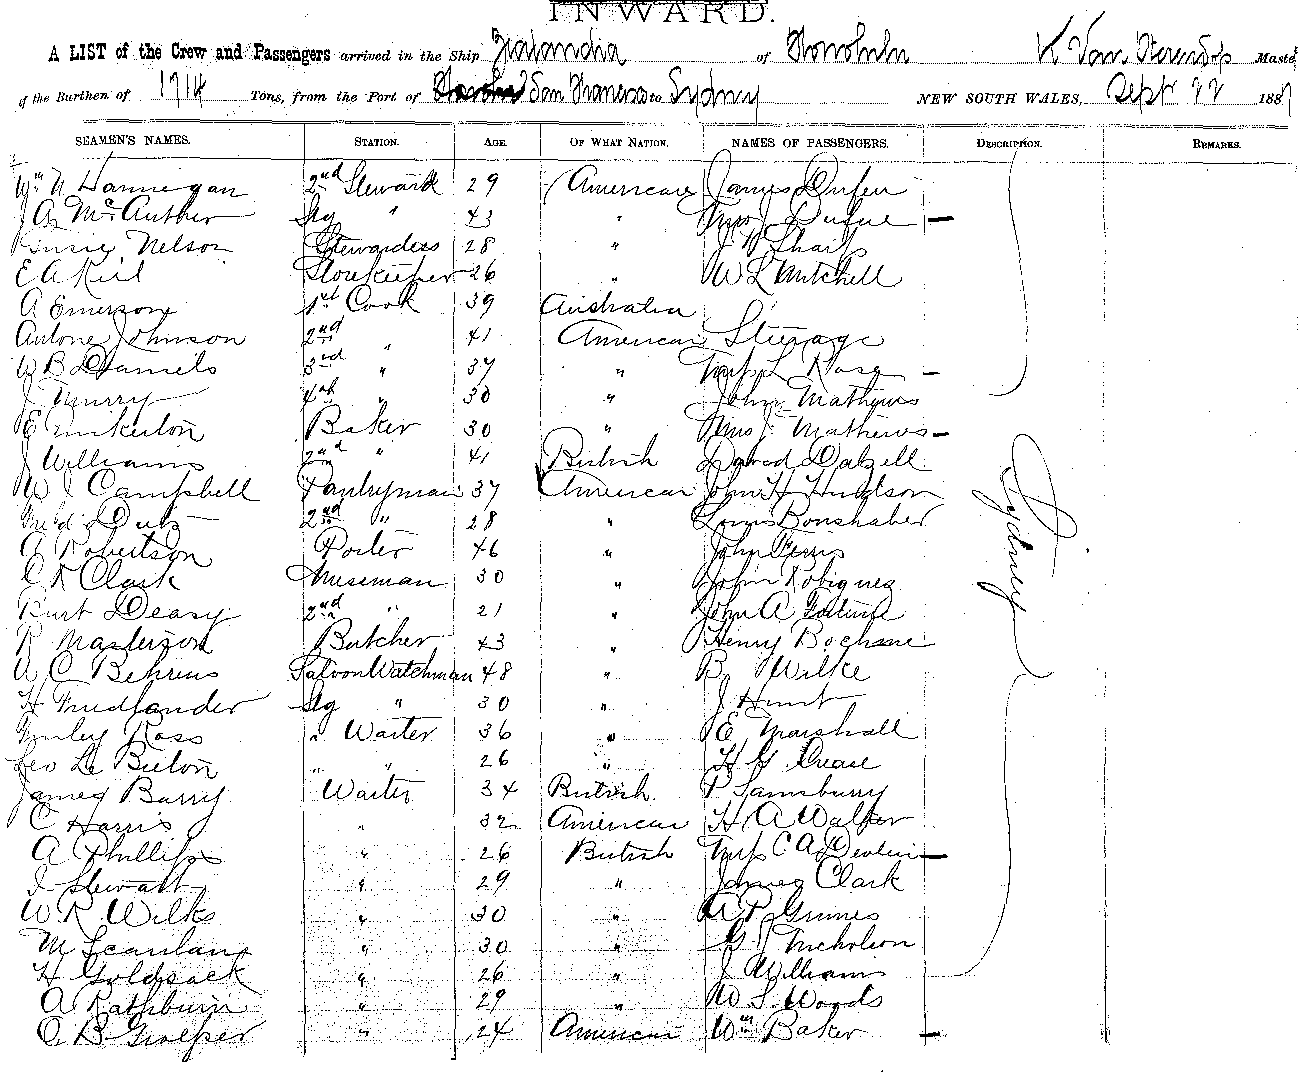 INWARD.
A LIST of the Crew and Passengers arrived in the Ship Zealandia of Honolulu K Van Master
of the Burthen of 1714 Tons, from the Port of San Francisco to Sydney NEW SOUTH WALES, Sept 22 188
SEAMEN'S NAMES. STATION. AGE. OF WHAT NATION. NAMES OF PASSENGERS. DESCRIPTION. REMARKS.
Wm N Hannegan 2nd Steward 29 American James
J A McAuther " 43 " Mrs J
Nelson Stewardess 28 " J W Sharp
E A Storekeeper 26 " W L Mitchell
A Emerson 1st Cook 39 Australia
Antone Johnson 2nd " 41 American Steerage
W B Daniels 3rd " 37 " Miss L Rose
J Murry 4th " 30 " John Mathews
E Baker 30 " Mrs J Mathews
J Williams 2nd " 41 British David Dalzell
W J Campbell Pantryman 37 American John H Hudson
2nd " 28 " Louis Bonshaber
A Robertson Porter 46 " John Ferris
C R Clark 30 " John
Burt Deasy 2nd " 21 " John A
R Masterson Butcher 43 " Henry
A C Behrens Saloon Watchman 48 " B Wilke
H Friedlander " 30 " J Hunt
Ross " Waiter 36 " E Marshall
Geo Le Buton " " 26 " H G Crease
James Barry Waiter 34 British P Sainsburry
C Harris " 32 American H A Walker
A Phillips " 26 British Miss C A Devlin
J Stewart " 29 " James Clark
W R Wilks " 30 " A P Grimes
M Scanlan " 30 " G Nicholson
H Goldsack " 26 " J Williams
A Rathburn " 29 " W S Woods
O B " 24 American Wm Baker
Sydney